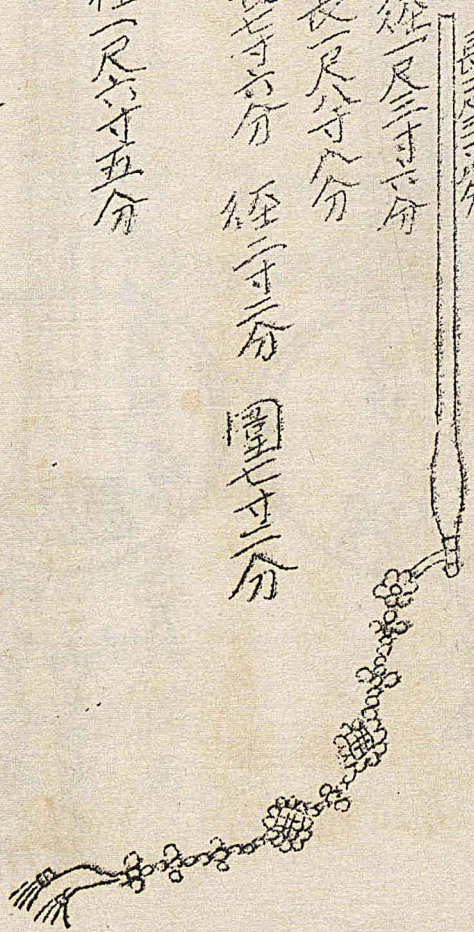 徑一尺三寸六分
長一尺八寸八分
長七寸六分 徑二寸二分 圍七寸二分
徑一尺六寸五分